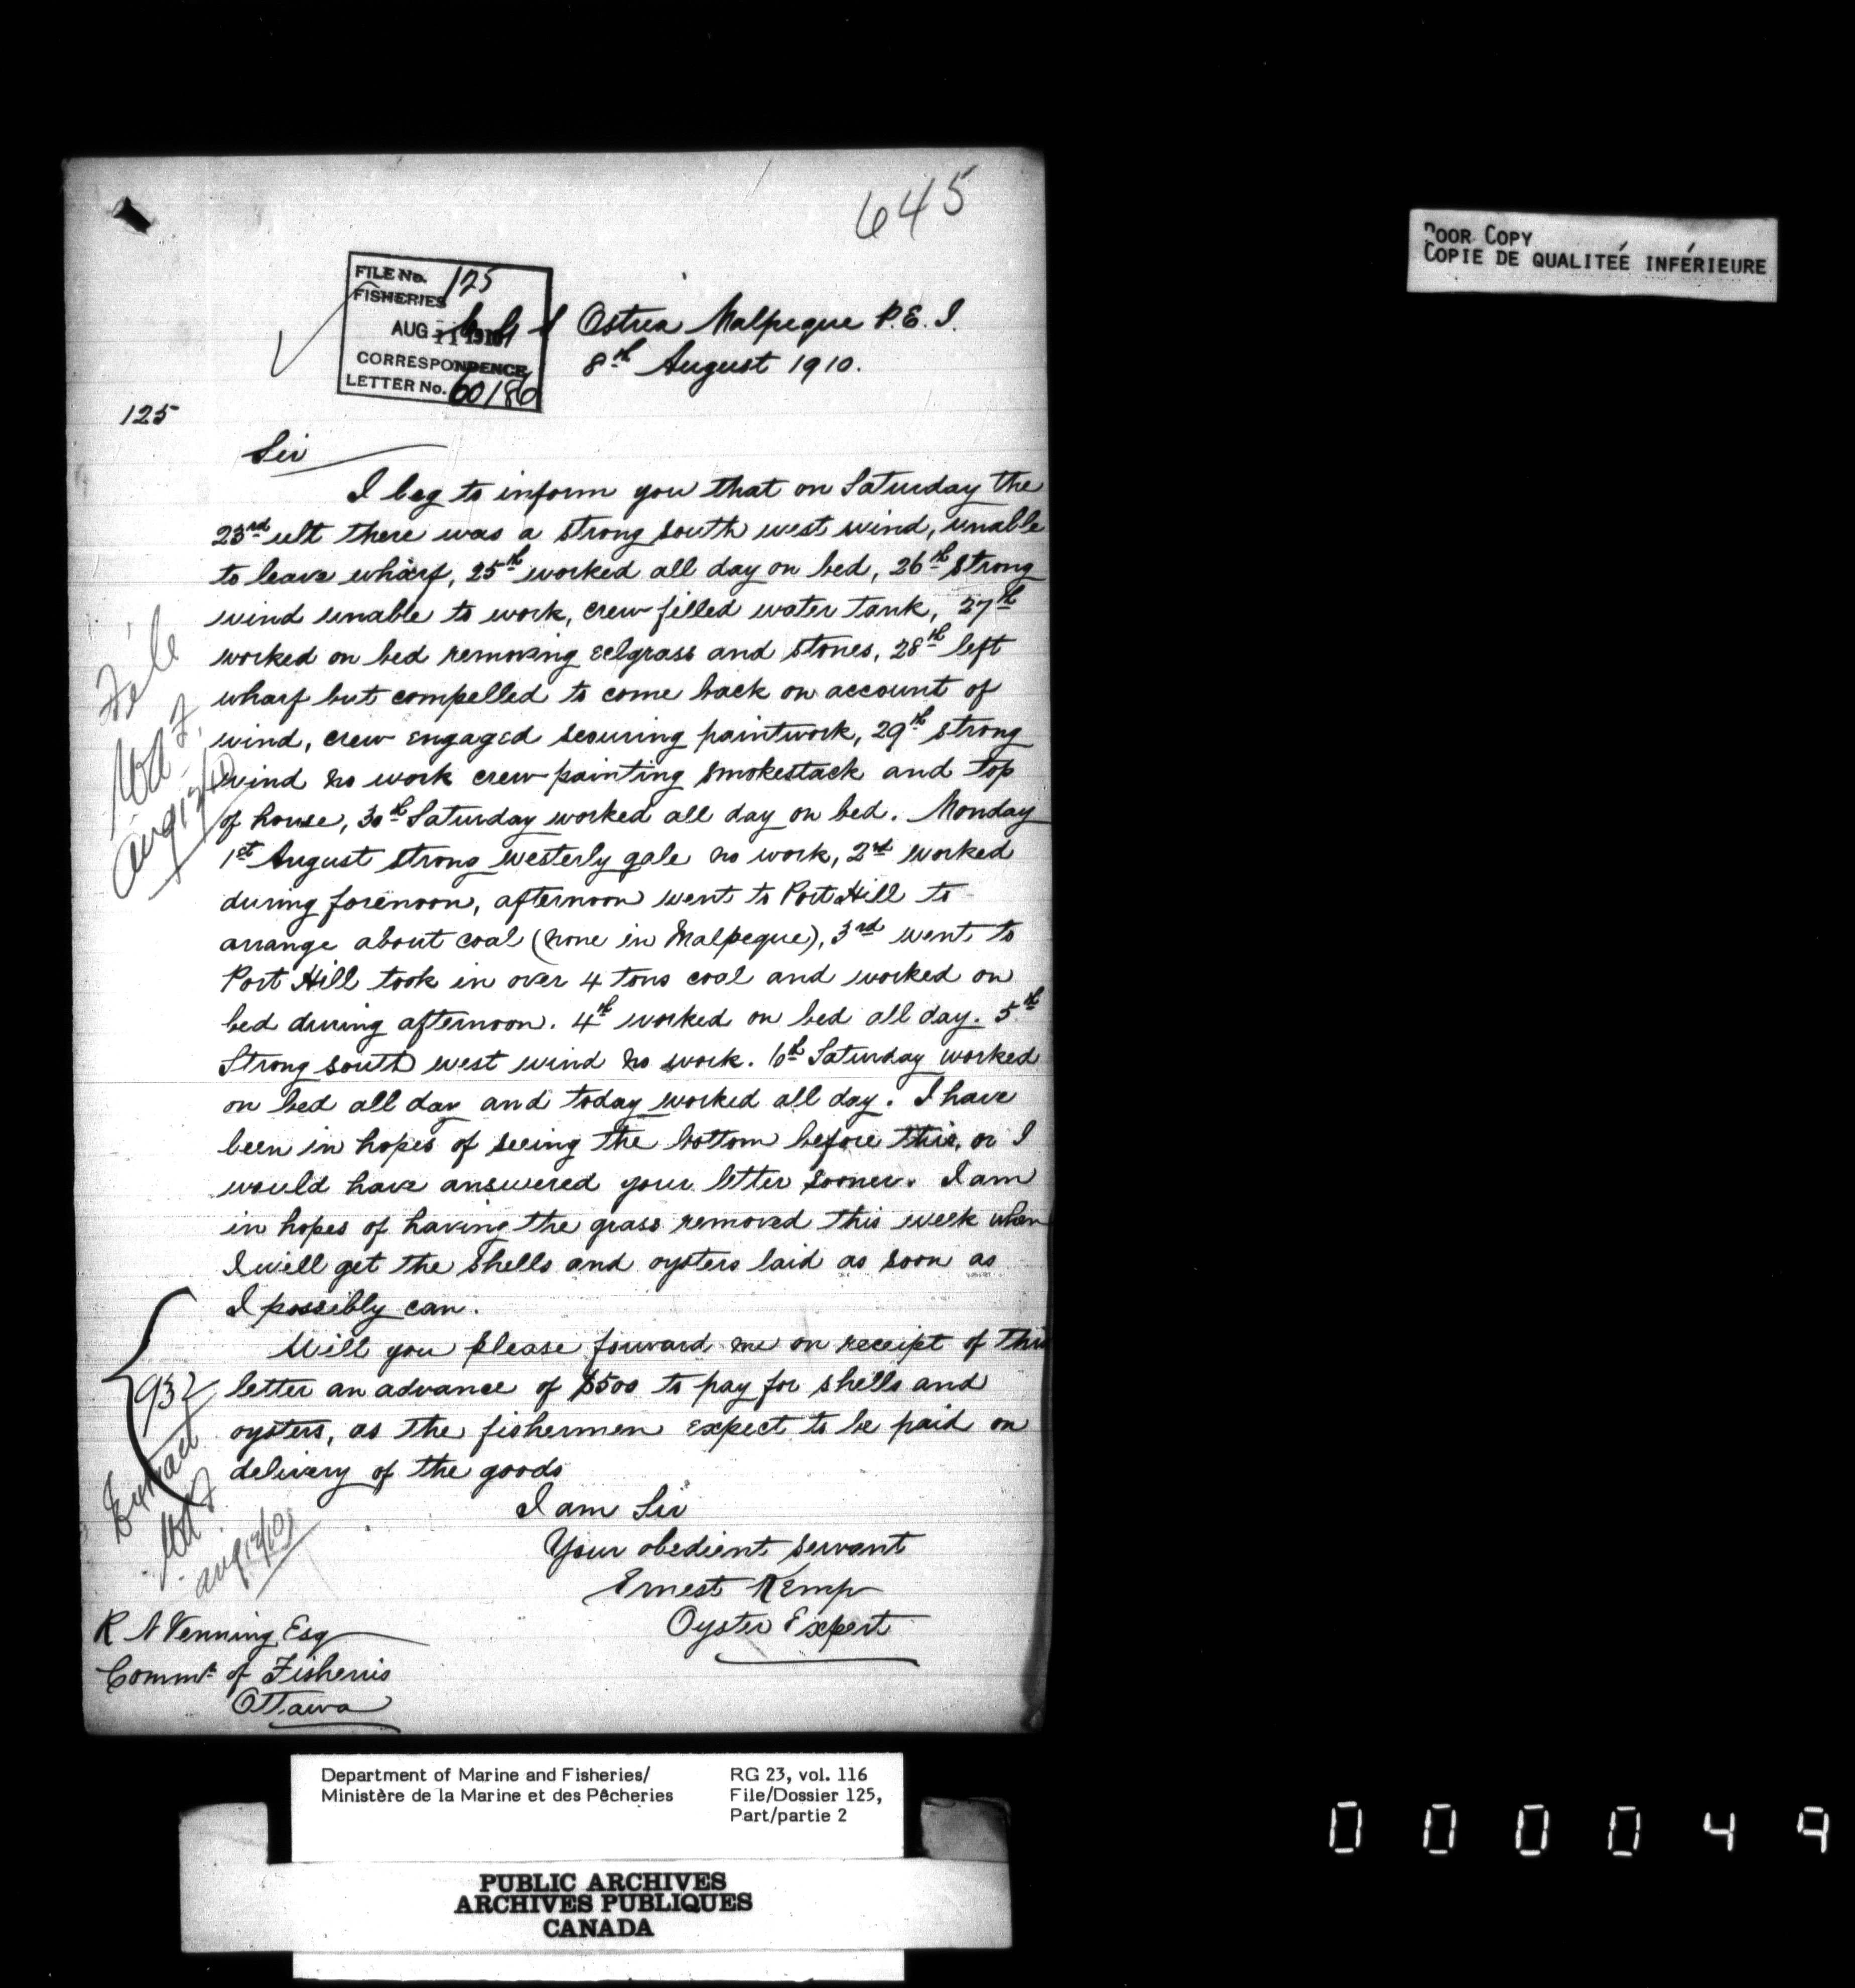 645
POOR COPY
COPIE DE QUALITEÉ INFÉRIEURE
FILE No. 125
FISHERIES
AUG 11 1910
CORRESPONDENCE
LETTER No. 60186
Ostrea Malpeque P.E.I.
8th August 1910.
125
Sir
I beg to inform you that on Saturday the
23rd ult there was a strong south west wind, unable
to leave wharf, 25th worked all day on bed, 26th strong
wind unable to work, crew filled water tank, 27th
worked on bed removing eelgrass and stones, 28th left
wharf but compelled to come back on account of
wind, crew engaged scouring paintwork, 29th strong
wind no work crew painting smokestack and top
of house, 30th Saturday worked all day on bed. Monday
1st August strong westerly gale no work, 2nd worked
during forenoon, afternoon went to Port Hill to
arrange about coal (none in Malpeque), 3rd went to
Port Hill took in over 4 tons coal and worked on
bed during afternoon. 4th worked on bed all day. 5th
Strong south west wind no work. 6th Saturday worked
on bed all day and today worked all day. I have
been in hopes of seeing the bottom before this, or I
would have answered your letter sooner. I am
in hopes of having the grass removed this week when
I will get the shells and oysters laid as soon as
I possibly can.
Will you please forward me on receipt of this
letter an advance of $500 to pay for shells and
oysters, as the fishermen expect to be paid on
delivery of the goods
I am Sir
Your obedient servant
Ernest Kemp
Oyster Expert
File
Aug 12/10
932
Extract
Aug 12/10
R N Venning Esq
Commr of Fisheries
Ottawa
Department of Marine and Fisheries/
Ministère de la Marine et des Pêcheries
RG 23, vol. 116
File/Dossier 125,
Part/partie 2
PUBLIC ARCHIVES
ARCHIVES PUBLIQUES
CANADA
000049